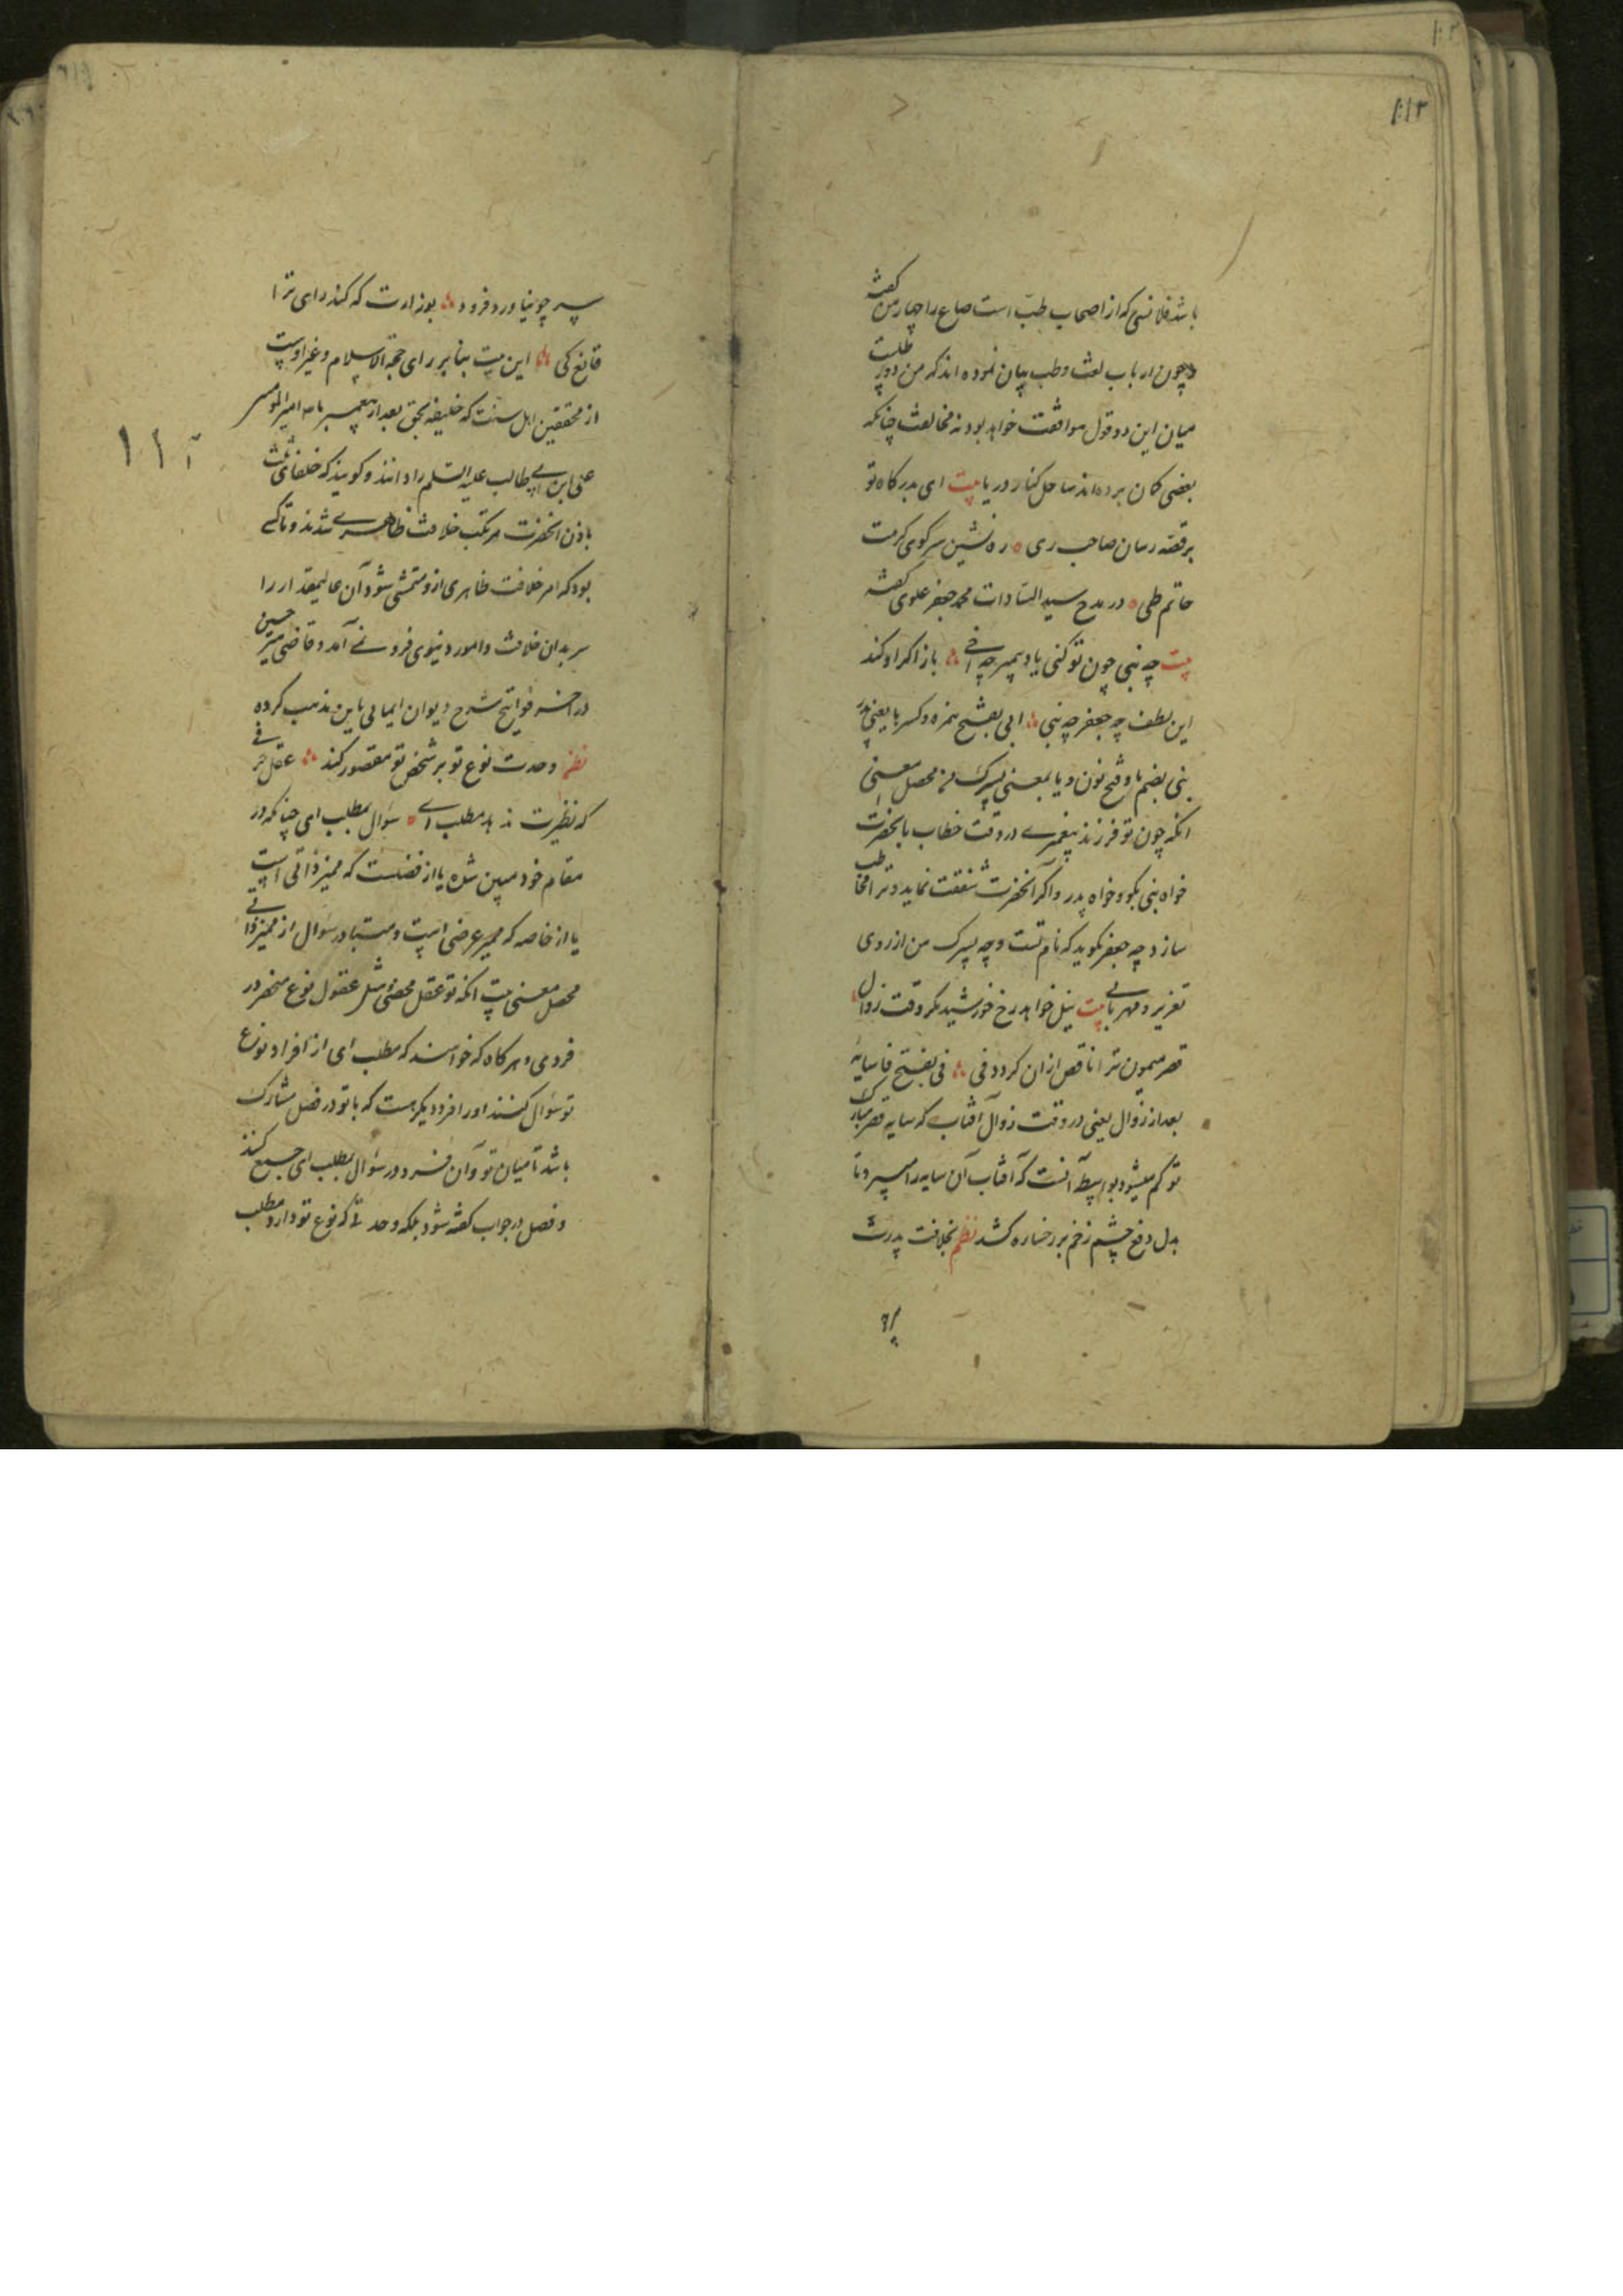 ۱۱۳
باشد قلانسی که از اصحاب طبّ است صاع را چهار من گفته
و چون ارباب لغت و طب بیان نموده اند که من دو رطلست
میان این دو قول موافقت خواهد بود نه مخالفت چنانکه
بعضی کمان برده اند ساحل کنار دریا بیت ای بدرکاه تو
بر قصه رسان صاحب ری ره نشین سر کوی کرمت
حاتم طی در مدح سید السّادات محمد جعفر علوی گفته
بیت چه نبی چون تو کنی یاد پیمبر چه اخی باز اکر او کند
این لطف چه جعفر چه بنی ابی بفتح همزه و کسر با یعنی پدر
بنی بضم با و فتح نون و یا بمعنی پسرک من محصل معنی
انکه چون تو فرزند پیغمبری در وقت خطاب بانحضرت
خواه نبی بکو و خواه پدر و اکر انحضرت شفقت نماید و ترا مخاطب
سازد چه جعفر بکوید که نام تست و چه پسرک من از روی
تعزیز و مهربانی بیت نیل خواهد رخ خورشید مکر وقت زوال
قصر میمون ترا ناقص ازان کردد فی فی بفتح فا سایه
بعد از زوال یعنی در وقت زوال آفتاب که سایه قصر مبارک
تو کم میشود بواسطه آنست که آفتاب آن سایه را میبرد تا
بدل دفع چشم زخم بر رخساره کشد نظم بخلافت پدرت
سر چو نیاورد فرود بوزارت که کند رای ترا
قانع کی این بیت بنابر رای حجة الاسلام و غیر اوست
از محققین اهل سنت که خلیفه بحق بعد از پیغمبر ما امیر المومنین
علی ابن ابی طالب علیه السّلم را دانند و کویند که خلفای ثلث
باذن انحضرت مرتکب خلافت ظاهری شدند و تا کسی
بود که امر خلافت ظاهری ازو متمشی شود آن عالیمقدار را
سر بدان خلافت و امور دنیوی فرو نمی آمد و قاضی میر حسین
در اخر فواتح شرح دیوان ایمایی باین مذهب کرده
نظم وحدت نوع تو بر شخص تو مقصور کند عقل صرفی
که نظیرت ندهد مطلب ای سؤال بمطلب ای چنانکه در
مقام خود مبین شده یا از فصلست که ممیز ذاتی است
یا از خاصه که ممیز عرضی است و متبادر سؤال از ممیز ذاتی
محصل معنی بیت انکه تو عقل محضی و مثل عقول نوع منحصر در
فردی و هر کاه که خواهند که بمطلب ای از افراد نوع
تو سؤال کنند او را فرد دیکر نیست که با تو در فصل مشارک
باشد تا میان تو و آن فرد در سؤال بمطلب ای جمع کنند
و فصل در جواب کفته شود بلکه وحدتی که نوع تو دارد مطلب